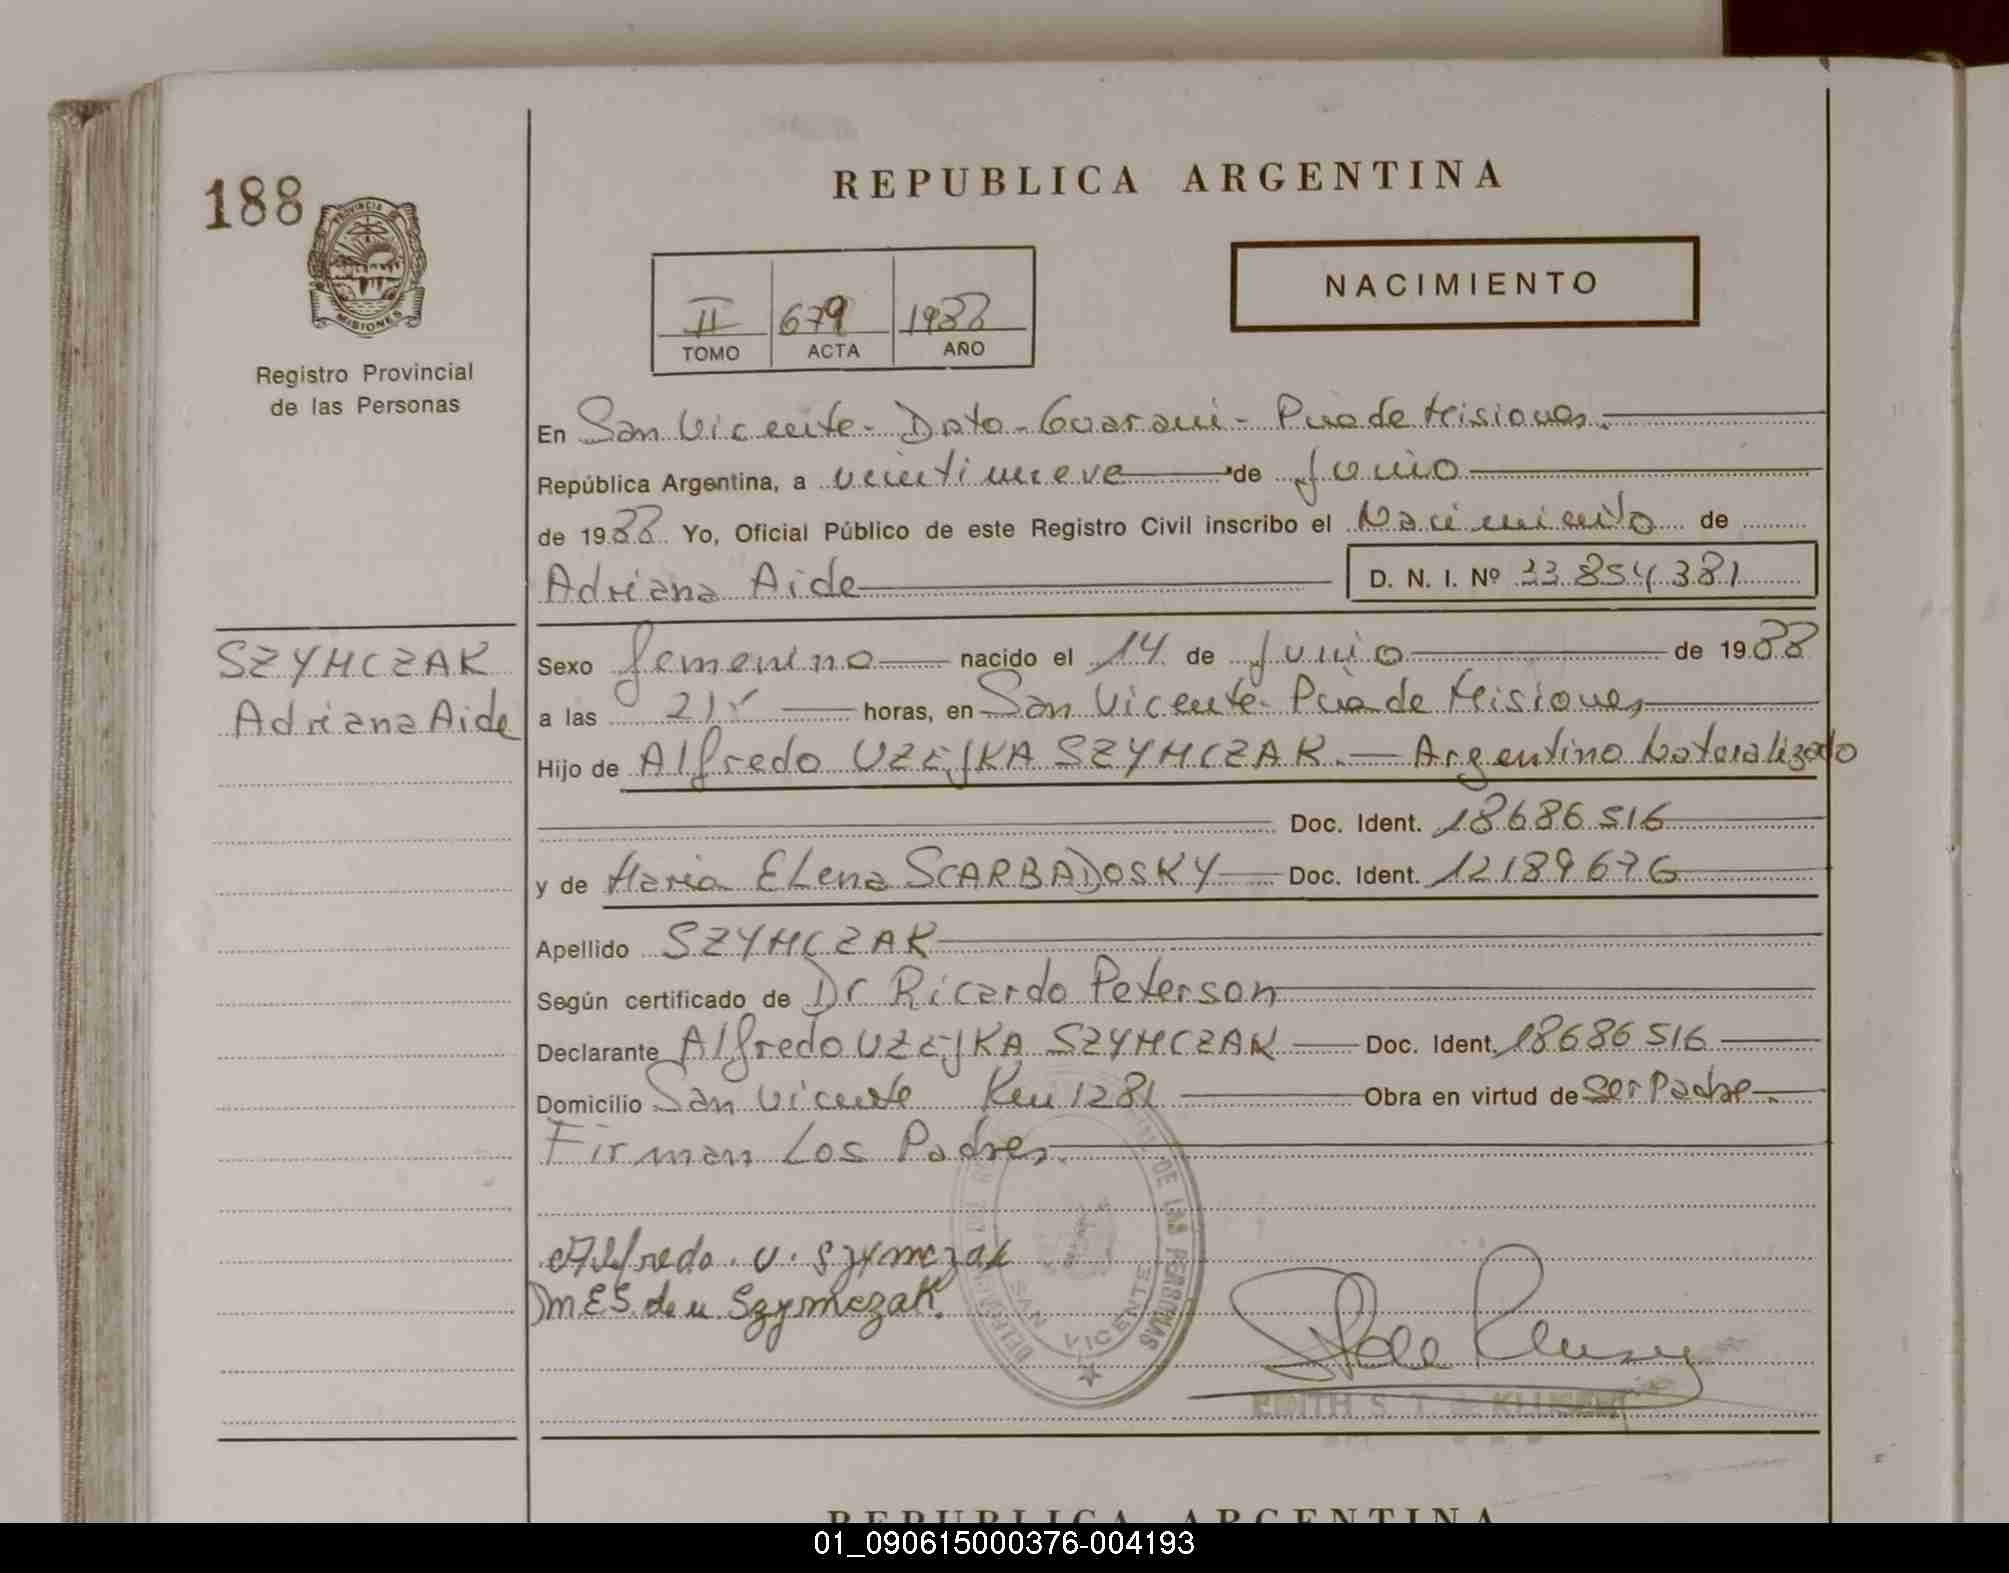 188
PROVINCIA
MISIONES
Registro Provincial
de las Personas
SZYMCZAK
Adriana Aide
REPUBLICA ARGENTINA
II 679 1988
TOMO ACTA AÑO
NACIMIENTO
En San Vicente - Dpto - Guarani - Pcia de Misiones.
República Argentina, a veintinueve de Junio
de 1988 Yo, Oficial Público de este Registro Civil inscribo el Nacimiento de
Adriana Aide D. N. I. Nº 33 854 381
Sexo femenino nacido el 14 de Junio de 1988
a las 21 horas, en San Vicente - Pcia de Misiones
Hijo de Alfredo UZEJKA SZYMCZAK. — Argentino Naturalizado
Doc. Ident. 18686516
y de Maria ELena SCARBADOSKY Doc. Ident. 12189676
Apellido SZYMCZAK
Según certificado de Dr Ricardo Peterson
Declarante Alfredo UZEJKA SZYMCZAK Doc. Ident. 18686516
Domicilio San Vicente Km 1281 Obra en virtud de Ser Padre.
Firman Los Padres.
Alfredo. U. Szymczak
M.E.S. de u Szymczak.
DE LAS PERSONAS
SAN VICENTE
EDITH S. T. de
REPUBLICA ARGENTINA
01_090615000376-004193